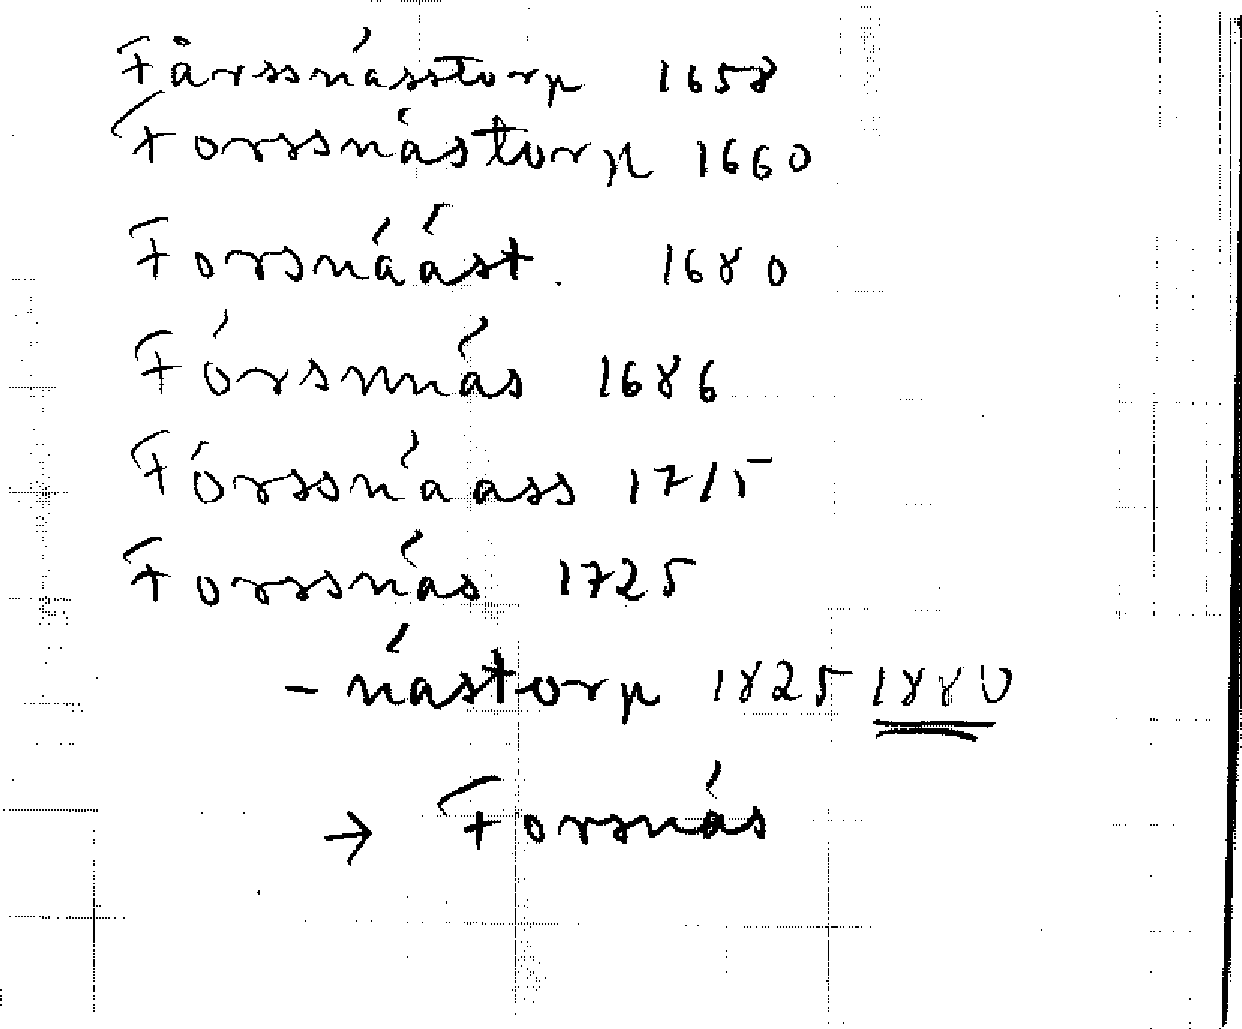 Fårssnásstorp 1658
Forssnástorp 1660
Forsnáást. 1680
Fórsnnás 1686
Fórssnáass 1715
Forssnás 1725
- nástorp 1825 1880
→ Forsnás